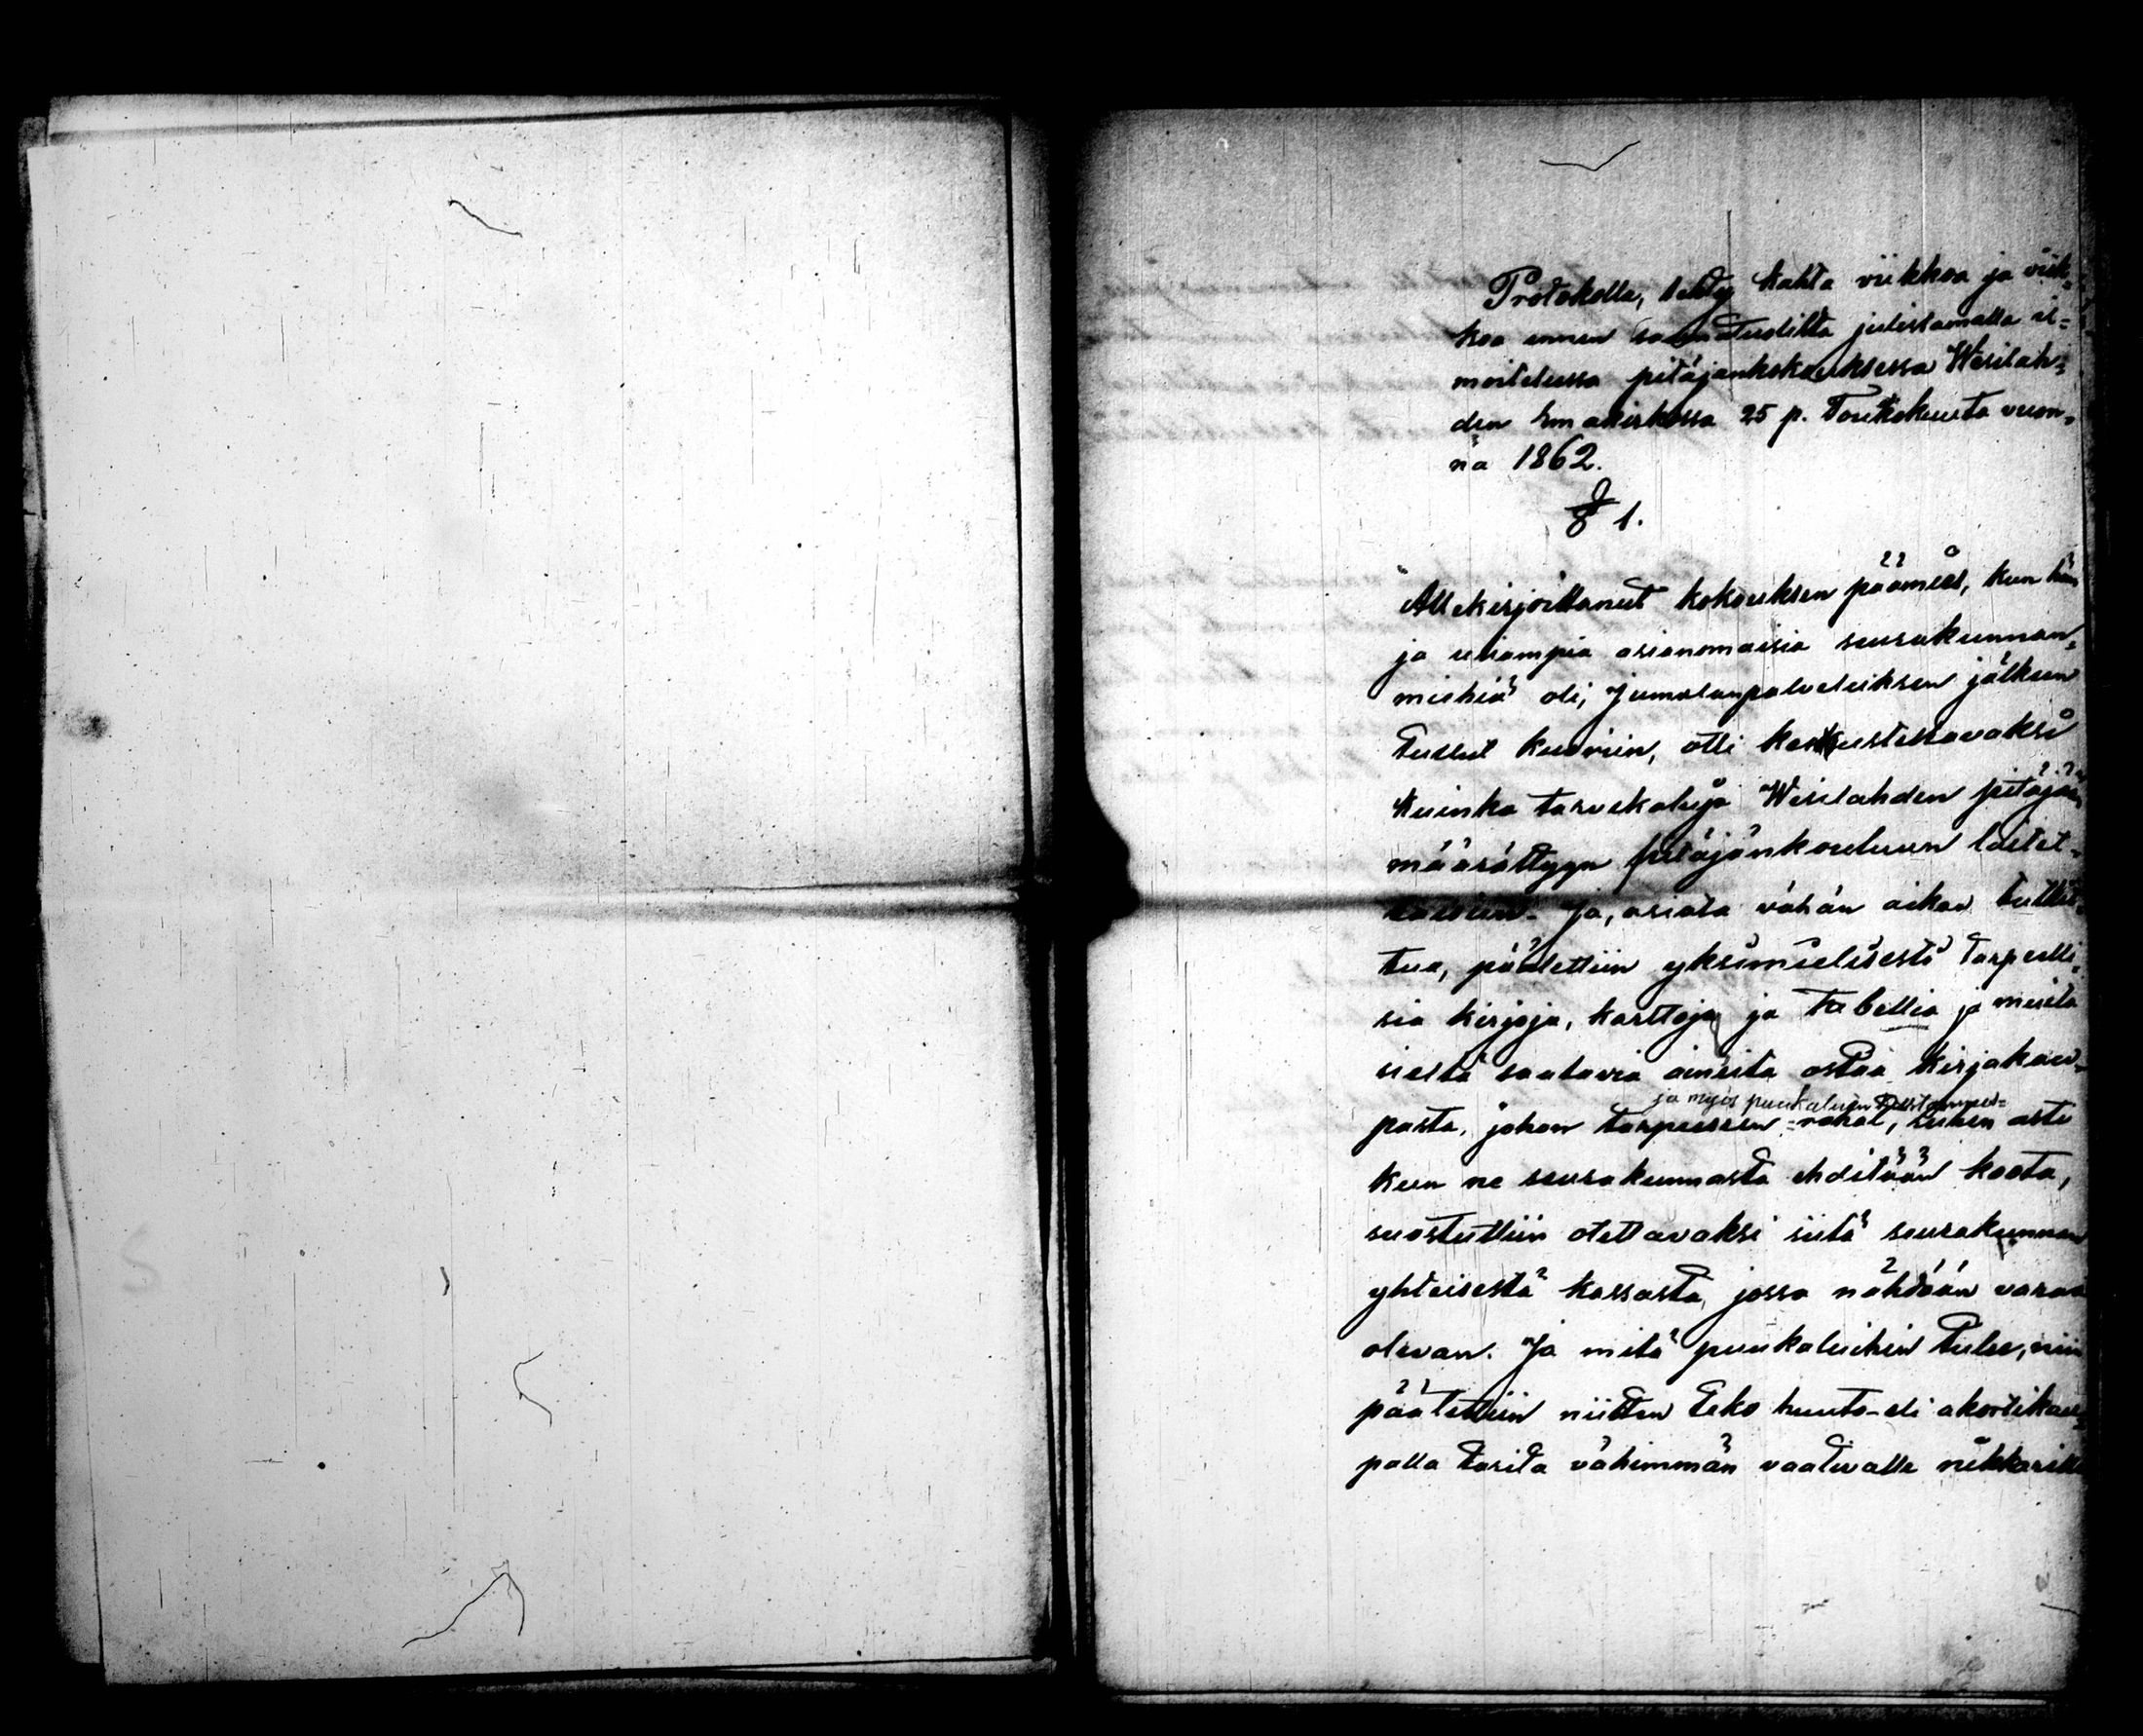 Protokolla, tehty kahta viikkoa ja viik-
koa ennen saarnatuolilta julistamalla il=
moitetussa pitäjänkokouksessa Wesilah=
den emäkirkossa 25 p. Toukokuuta vuon=
na 1862.
§ 1.
Allekirjoittanut kokouksen päämies, kun hän
ja useampia asianomaisia seurakunnan=
miehiä oli, Jumalanpalveluksen jälkeen
tullut kuoriin, otti keskusteltavaksi
kuinka tarvekaluja Wesilahden pitäjään
määrättyyn pitäjänkouluun laitet=
taisiin. Ja, asiata vähän aikaa tutkit=
tua, päätettiin yksimielisesti tarpeelli=
sia kirjoja, karttoja ja tabellia ja muita
sieltä saatavia aineita ostaa kirjakau=
ja myös puukalujen
pasta, johon tarpeessen =rahat, siihen asti
kun ne seurakunnasta ehditään koota,
suostuttiin otettavaksi siitä seurakunnan
yhteisestä kassasta, jossa nähdään varaa
olevan. Ja mitä puukaluihin tulee, niin
päätettiin niitten teko huuto-eli akortikau=
palla tarita vähimmän vaativalle nikkarille